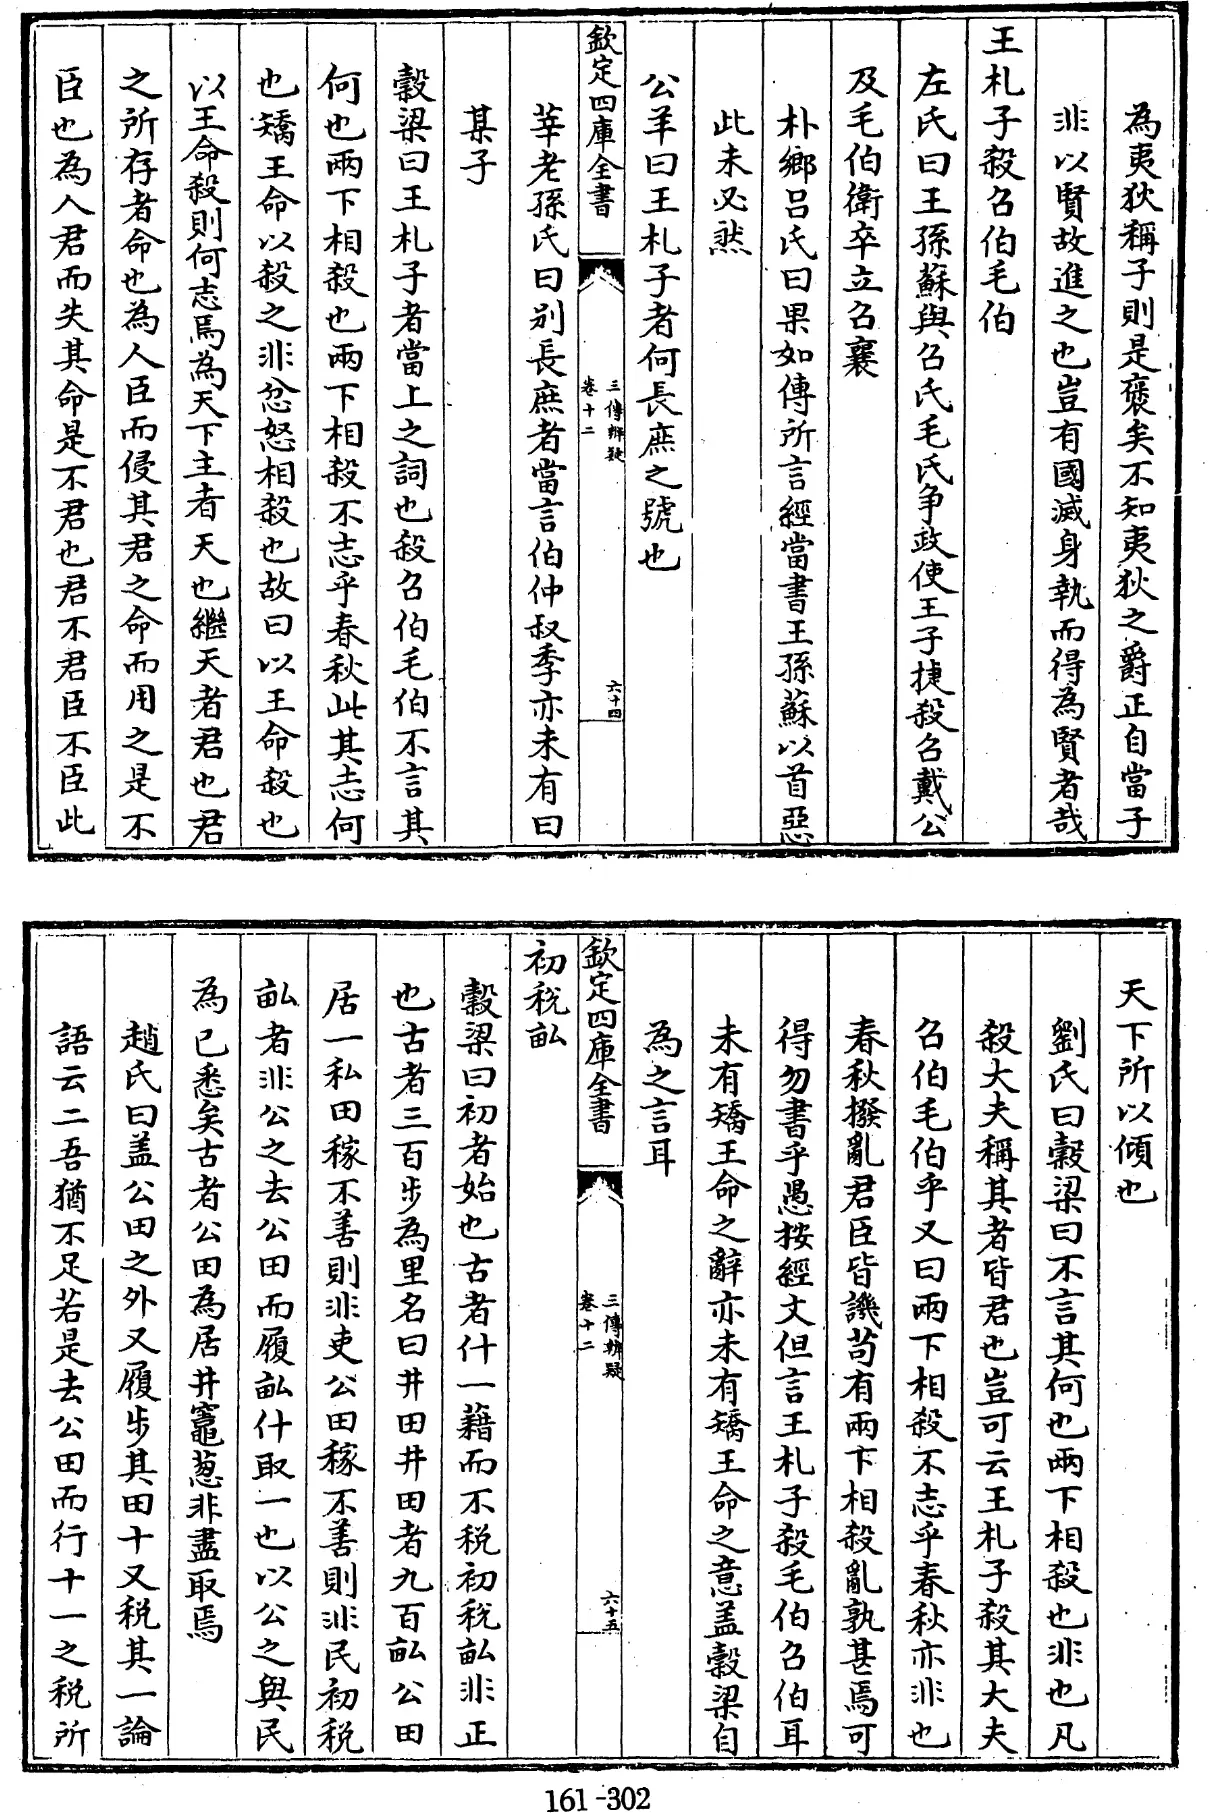 為夷狄稱子則是褒矣不知夷狄之爵正自當子
非以賢故進之也豈有國滅身執而得為賢者哉
王札子殺召伯毛伯
左氏曰王孫蘇與召氏毛氏争政使王子捷殺召戴公
及毛伯衛卒立召襄
朴鄉呂氏曰果如傳所言經當書王孫蘇以首惡
此未必然
公羊曰王札子者何長庶之號也
欽定四庫全書
三傳辨疑
卷十二
六十四
莘老孫氏曰别長庶者當言伯仲叔季亦未有曰
某子
穀梁曰王札子者當上之詞也殺召伯毛伯不言其
何也兩下相殺也兩下相殺不志乎春秋此其志何
也矯王命以殺之非忿怒相殺也故曰以王命殺也
以王命殺則何志焉為天下主者天也繼天者君也君
之所存者命也為人臣而侵其君之命而用之是不
臣也為人君而失其命是不君也君不君臣不臣此
天下所以傾也
劉氏曰穀梁曰不言其何也兩下相殺也非也凡
殺大夫稱其者皆君也豈可云王札子殺其大夫
召伯毛伯乎又曰兩下相殺不志乎春秋亦非也
春秋撥亂君臣皆譏苟有兩下相殺亂孰甚焉可
得勿書乎愚按經文但言王札子殺毛伯召伯耳
未有矯王命之辭亦未有矯王命之意盖穀梁自
為之言耳
欽定四庫全書
三傳辨疑
卷十二
六十五
初稅畝
穀梁曰初者始也古者什一藉而不稅初稅畝非正
也古者三百步為里名曰井田井田者九百畝公田
居一私田稼不善則非吏公田稼不善則非民初稅
畝者非公之去公田而履畝什取一也以公之與民
為已悉矣古者公田為居井竈葱韭盡取焉
趙氏曰盖公田之外又履步其田十又稅其一論
語云二吾猶不足若是去公田而行十一之稅所
161-302